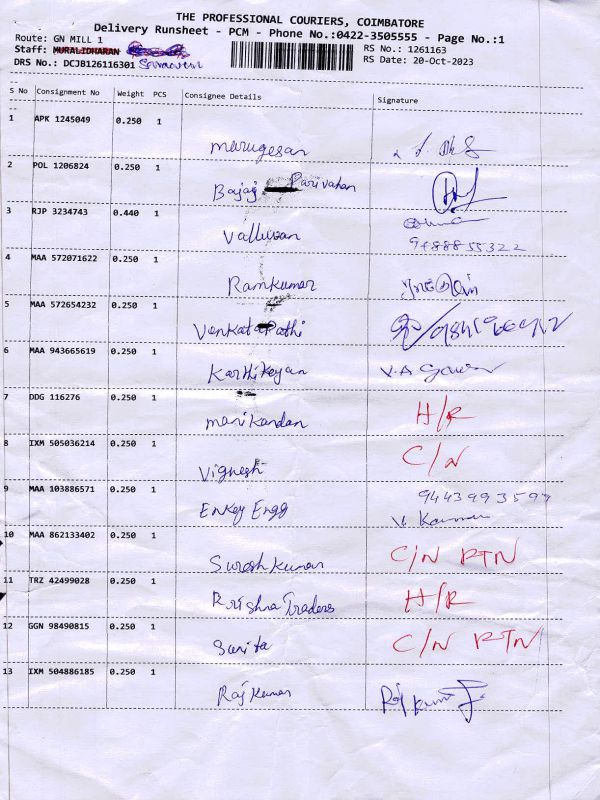 THE PROFESSIONAL COURIERS, COIMBATORE
Delivery Runsheet - PCM - Phone No.:0422-3505555 - Page No.:1
Route: GN MILL 1 RS No.: 1261163
Staff: MURALIDHARAN RS Date: 20-Oct-2023
DRS No.: DCJB126116301 Saravanan
S No Consignment No Weight PCS Consignee Details Signature
1 APK 1245049 0.250 1
Murugesan
2 POL 1206824 0.250 1
Bajaj Parivahan
3 RJP 3234743 0.440 1
Valluvan 9488855322
4 MAA 572071622 0.250 1
Ramkumar
5 MAA 572654232 0.250 1
Venkata Pathi
6 MAA 943665619 0.250 1
Karthikeyan V.A
7 DDG 116276 0.250 1
manikandan H/R
8 IXM 505036214 0.250 1
Vignesh C/N
9 MAA 103886571 0.250 1
Enkey Engg 9443993597
V. Kannan
10 MAA 862133402 0.250 1
Suresh Kumar C/N RTN
11 TRZ 42499028 0.250 1
Krishna Traders H/R
12 GGN 98490815 0.250 1
Sunita C/N RTN
13 IXM 504886185 0.250 1
Raj Kumar Raj Kumar